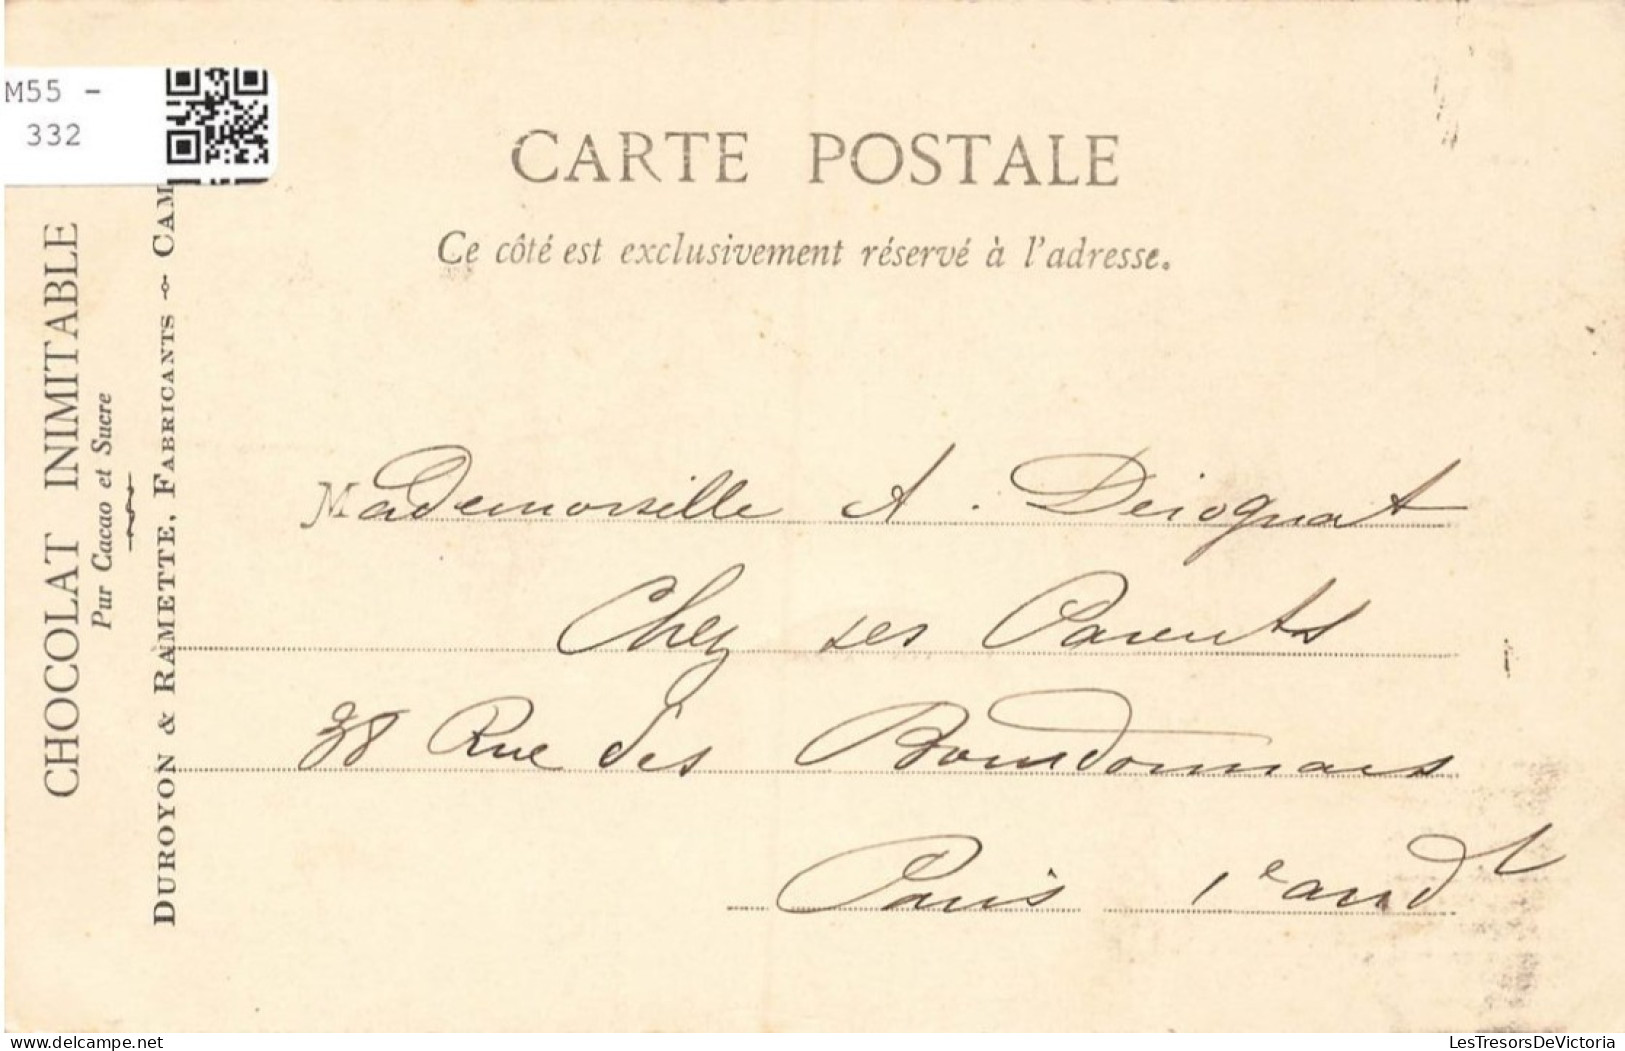 M55 -
332
CARTE POSTALE
Ce côté est exclusivement réservé à l'adresse.
CHOCOLAT INIMITABLE
Pur Cacao et Sucre
DUROYON & RAMETTE, FABRICANTS — CAM
Mademoiselle A. Deiognat
Chez ses Parents
38 Rue des Bourdonnais
Paris 1e arrdt
www.delcampe.net
LesTresorsDeVictoria